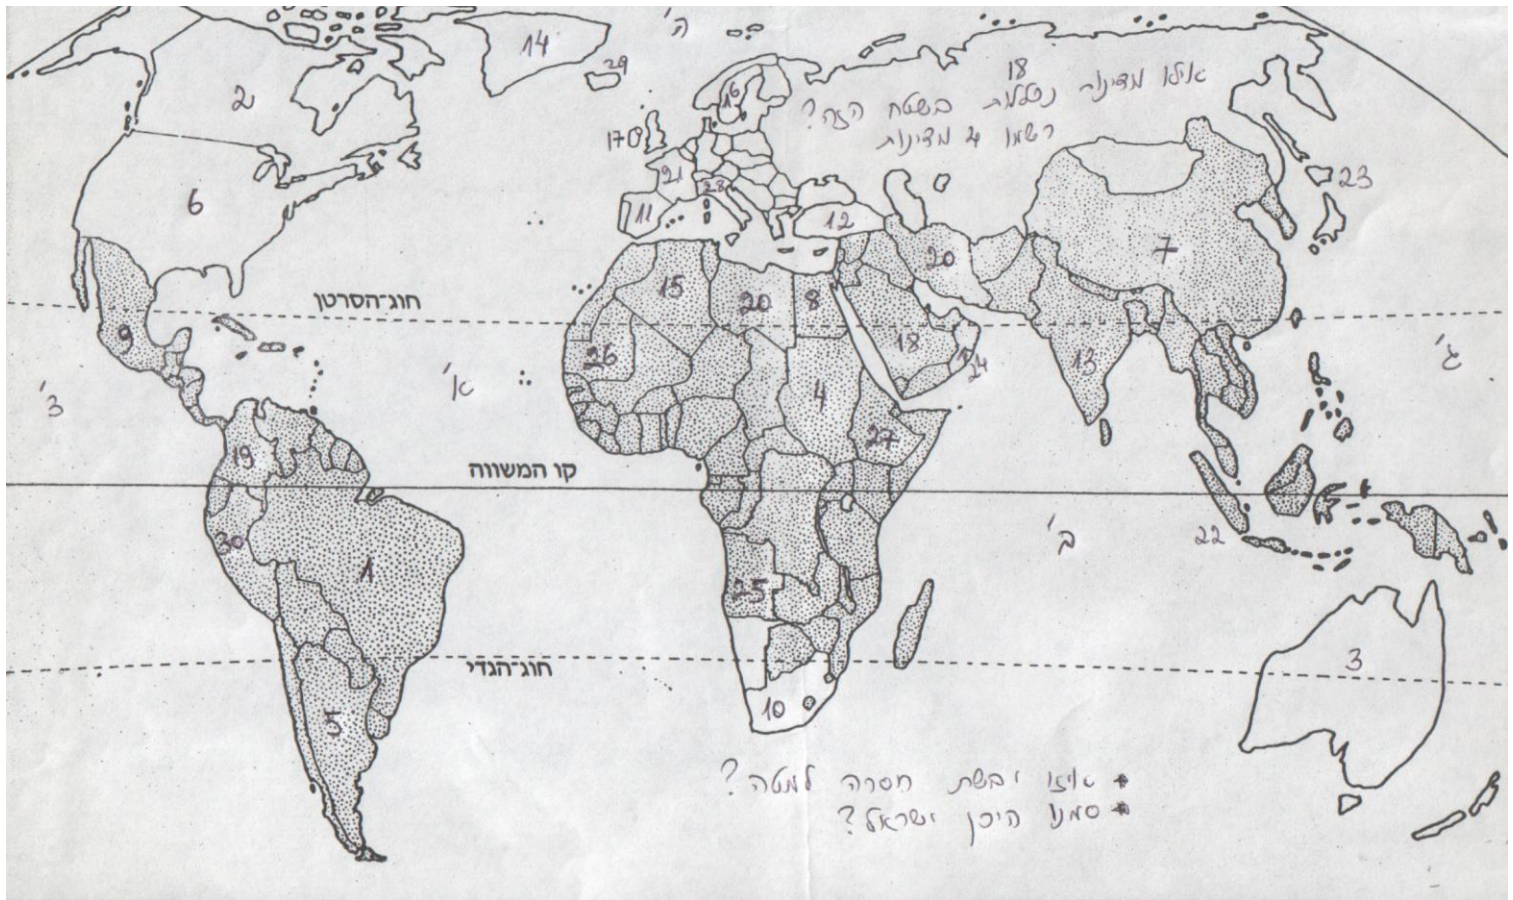 ה'
14
29
2
16
18
אילו מדינות נכללות בשטח הזה?
רשמו 4 מדינות
17
21
28
23
6
11
12
7
20
15
20
8
חוג־הסרטן
9
26
18
13
24
ג'
א'
ד'
4
27
19
קו המשווה
ב'
22
30
1
25
3
חוג־הגדי
10
5
* איזו יבשת חסרה למטה?
* סמנו היכן ישראל?